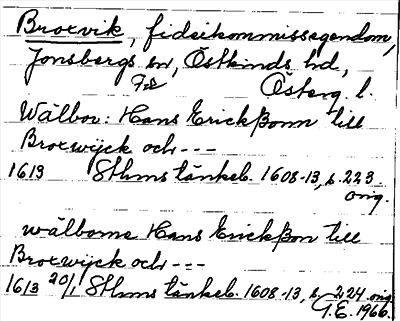 Broxvik, fideikommissegendom,
Jonsbergs sn, Östkinds hd,
Österg l.
Wälbor: Hans Erickßonn till
Broxwijck och ---
1613 Sthms tänkeb. 1608-13, s. 223.
orig.
wälborne Hans Erickßon till
Broxwijck och ---
1613 20/1 Sthms tänkeb. 1608-13, s. 224 orig
G.E. 1966.